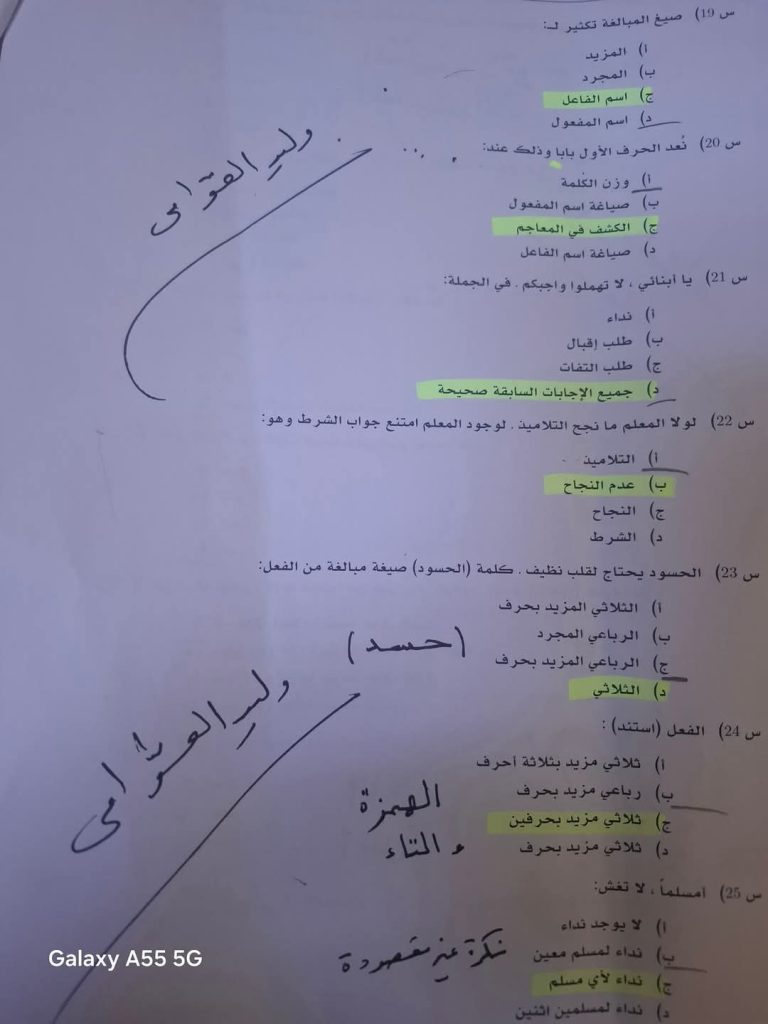 س 19) صيغ المبالغة تكثير لـ:
أ) المزيد
ب) المجرد
ج) اسم الفاعل
د) اسم المفعول
س 20) نُعد الحرف الأول بابا وذلك عند:
أ) وزن الكلمة
ب) صياغة اسم المفعول
ج) الكشف في المعاجم
د) صياغة اسم الفاعل
وليد العوّامي
س 21) يا أبنائي ، لا تهملوا واجبكم . في الجملة:
أ) نداء
ب) طلب إقبال
ج) طلب التفات
د) جميع الإجابات السابقة صحيحة
س 22) لولا المعلم ما نجح التلاميذ . لوجود المعلم امتنع جواب الشرط وهو:
أ) التلاميذ
ب) عدم النجاح
ج) النجاح
د) الشرط
س 23) الحسود يحتاج لقلب نظيف . كلمة (الحسود) صيغة مبالغة من الفعل:
أ) الثلاثي المزيد بحرف
ب) الرباعي المجرد
ج) الرباعي المزيد بحرف
د) الثلاثي
(حسد)
وليد العوّامي
س 24) الفعل (استند) :
أ) ثلاثي مزيد بثلاثة أحرف
ب) رباعي مزيد بحرف
ج) ثلاثي مزيد بحرفين
د) ثلاثي مزيد بحرف
الهمزة
و التاء
س 25) امسلماً ، لا تغش:
أ) لا يوجد نداء
ب) نداء لمسلم معين
ج) نداء لأي مسلم
د) نداء لمسلمين اثنين
نكرة غير مقصودة
Galaxy A55 5G